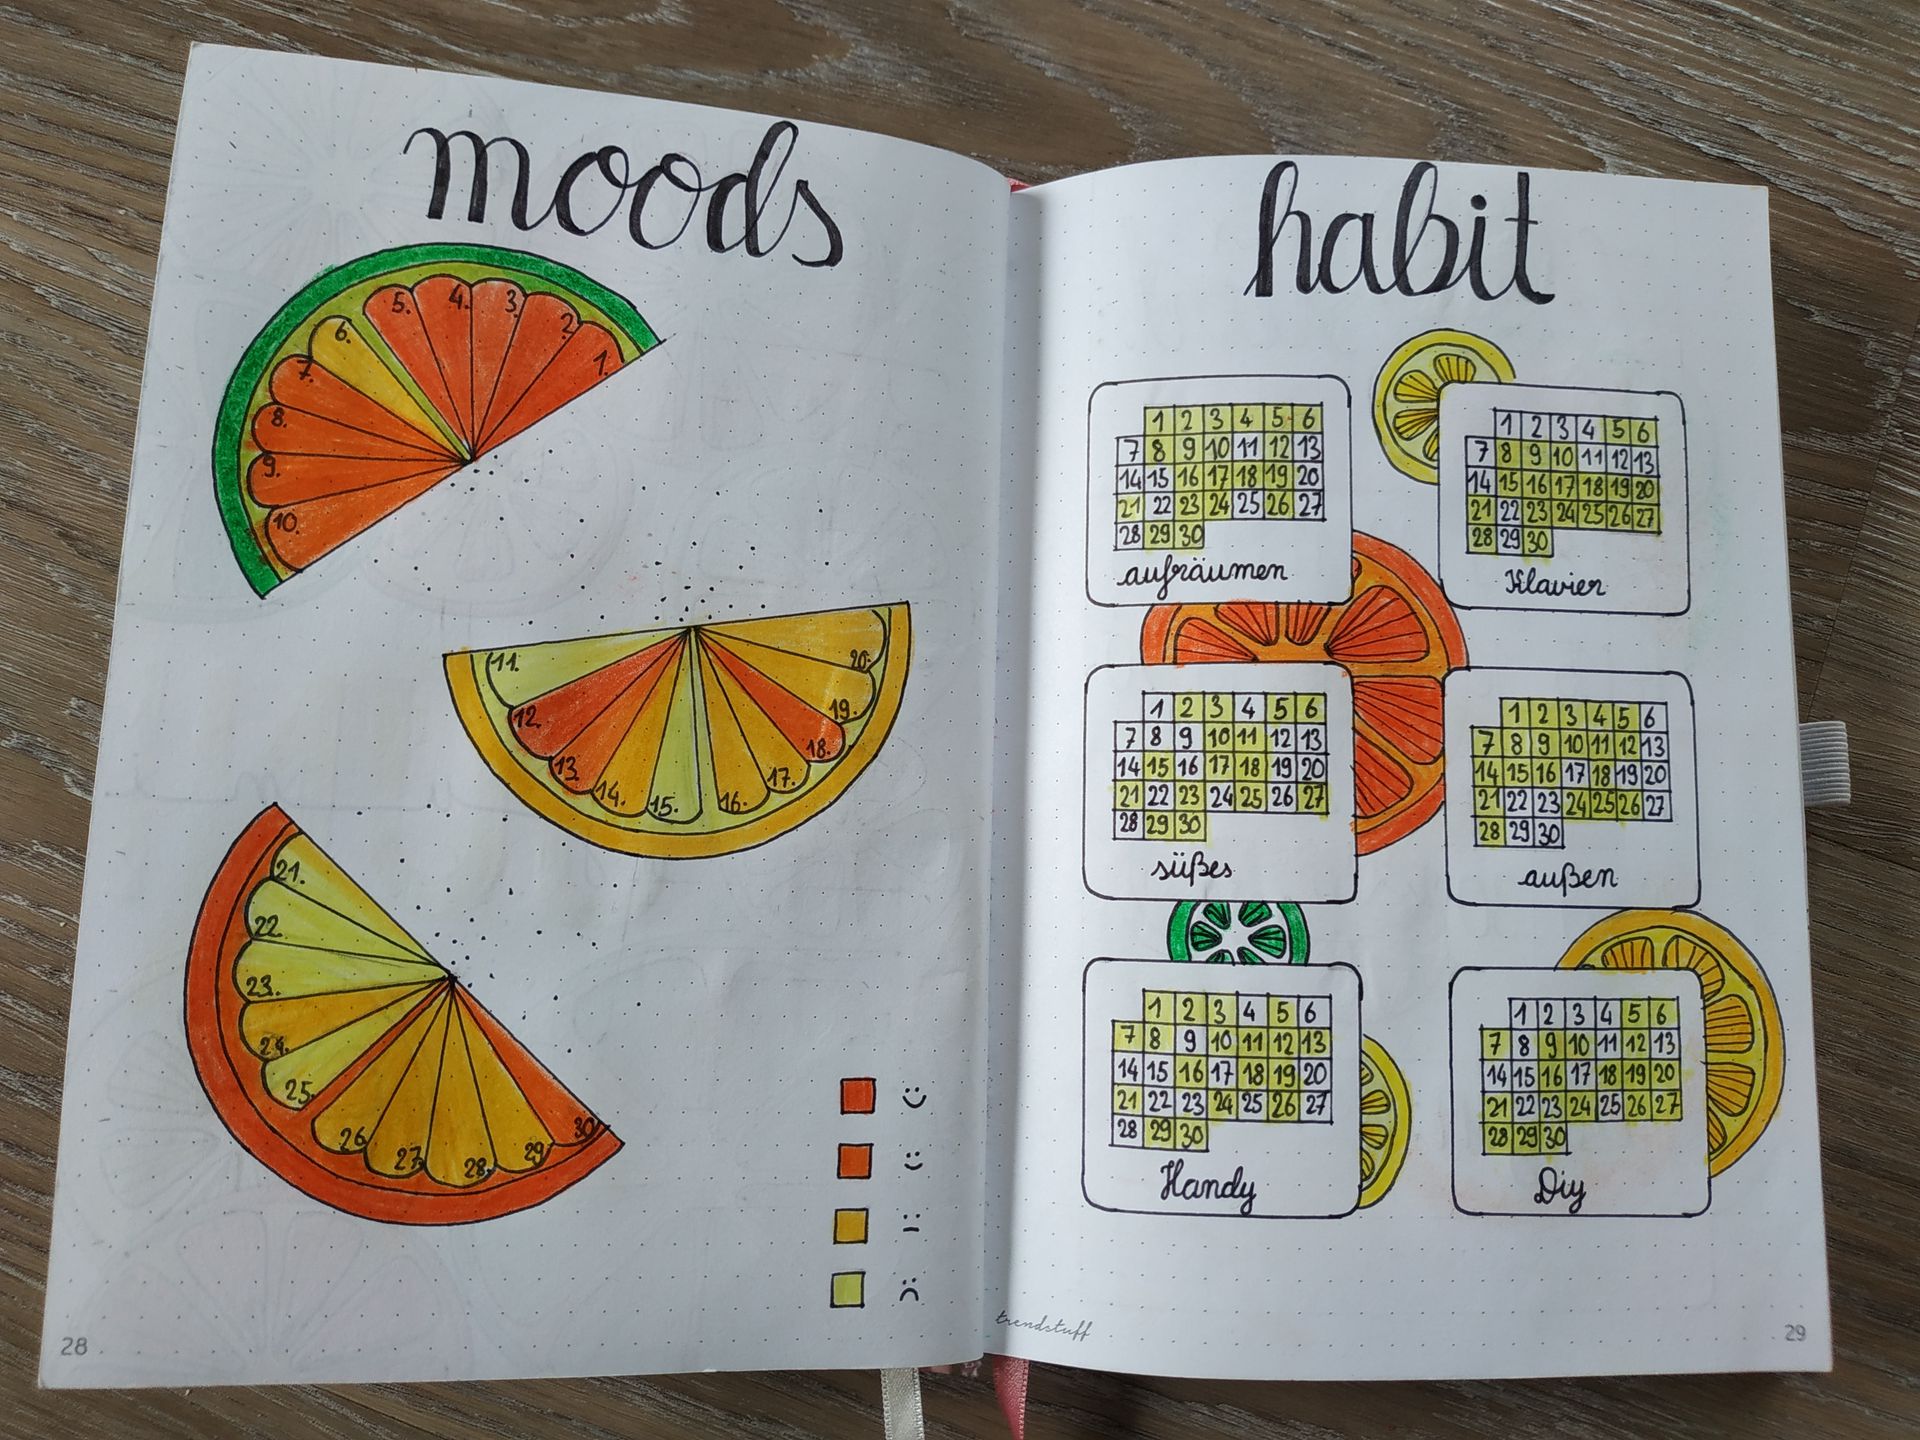 moods
5.
4.
3.
2.
1.
6.
7.
8.
9.
10.
11.
12.
13.
14.
15.
16.
17.
18.
19.
20.
21.
22.
23.
24.
25.
26
27.
28.
29.
30.
28
habit
1 2 3 4 5 6
7 8 9 10 11 12 13
14 15 16 17 18 19 20
21 22 23 24 25 26 27
28 29 30
aufräumen
1 2 3 4 5 6
7 8 9 10 11 12 13
14 15 16 17 18 19 20
21 22 23 24 25 26 27
28 29 30
Klavier
1 2 3 4 5 6
7 8 9 10 11 12 13
14 15 16 17 18 19 20
21 22 23 24 25 26 27
28 29 30
süßes
1 2 3 4 5 6
7 8 9 10 11 12 13
14 15 16 17 18 19 20
21 22 23 24 25 26 27
28 29 30
außen
1 2 3 4 5 6
7 8 9 10 11 12 13
14 15 16 17 18 19 20
21 22 23 24 25 26 27
28 29 30
Handy
1 2 3 4 5 6
7 8 9 10 11 12 13
14 15 16 17 18 19 20
21 22 23 24 25 26 27
28 29 30
Diy
trendstuff
29